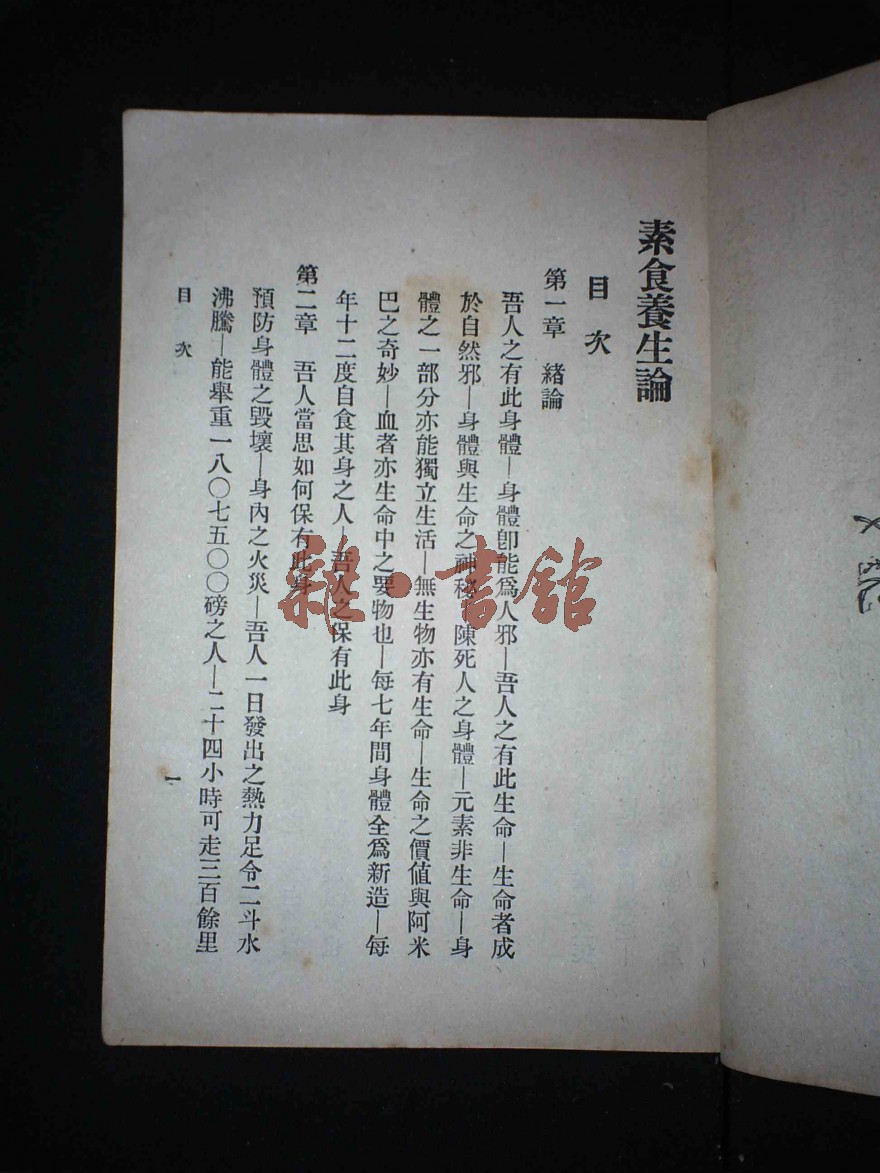 素食養生論
目次
第一章 緒論
吾人之有此身體—身體卽能爲人邪—吾人之有此生命—生命者成
於自然邪—身體與生命之神秘—陳死人之身體—元素非生命—身
體之一部分亦能獨立生活—無生物亦有生命—生命之價值與阿米
巴之奇妙—血者亦生命中之要物也—每七年間身體全爲新造—每
年十二度自食其身之人—吾人之保有此身
第二章 吾人當思如何保有此身
預防身體之毀壞—身內之火災—吾人一日發出之熱力足令二斗水
沸騰—能舉重一八〇七五〇〇磅之人—二十四小時可走三百餘里
目次
一
雜·書館